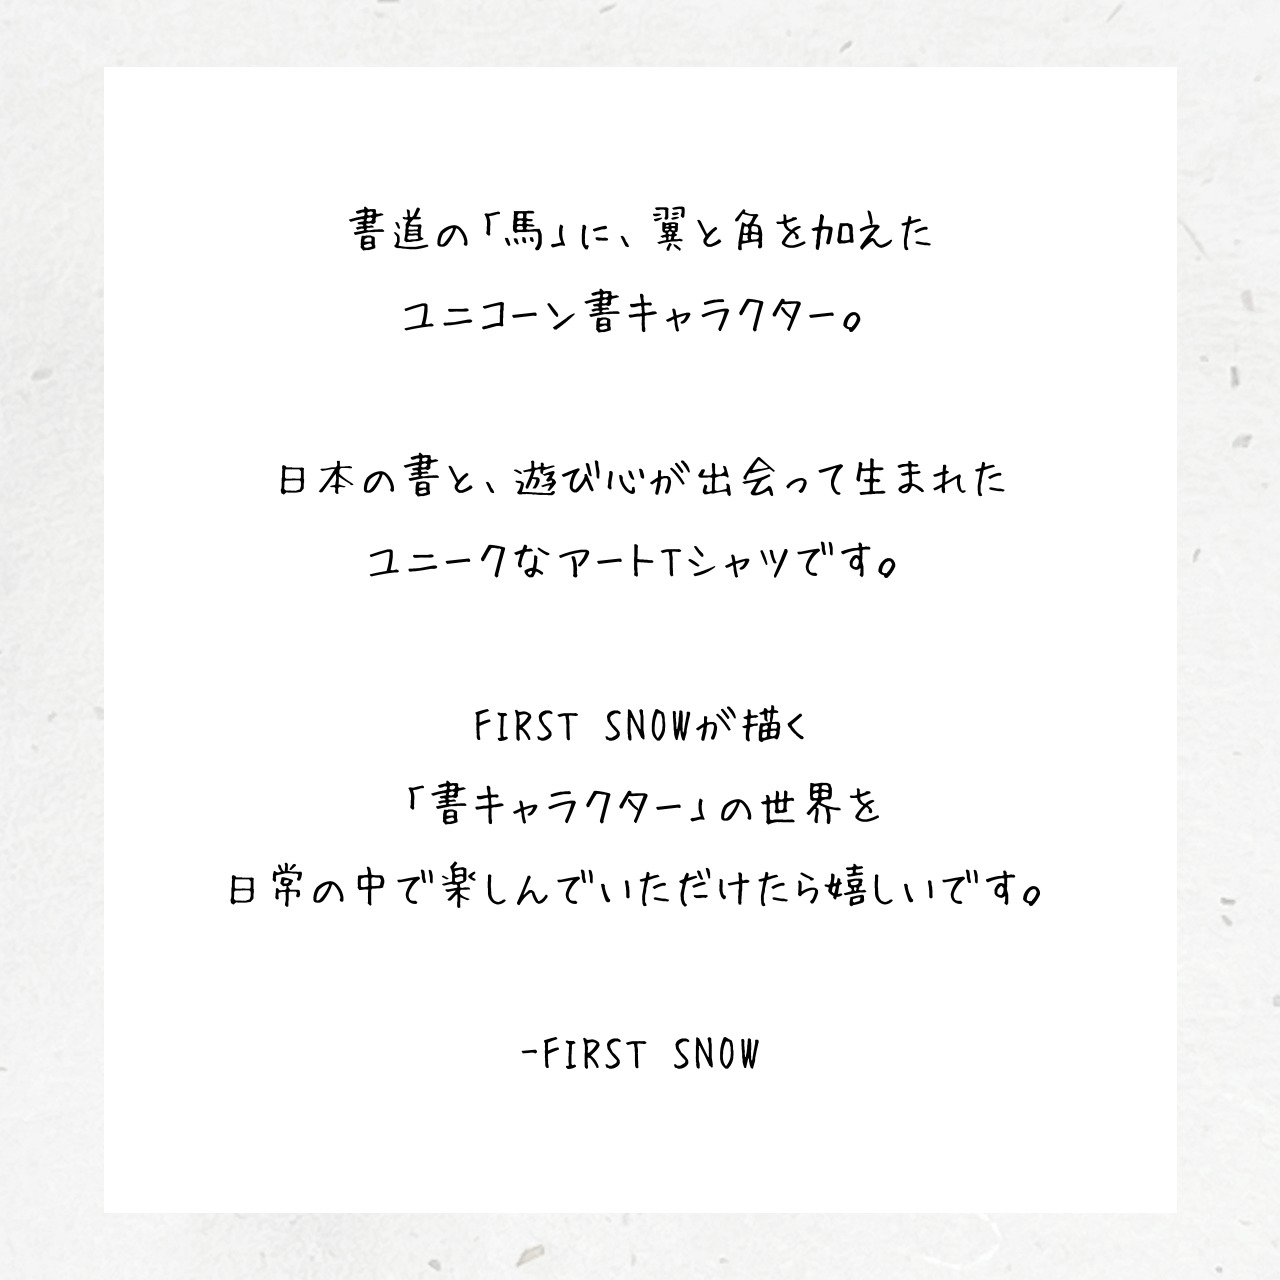 書道の「馬」に、翼と角を加えた
ユニコーン書キャラクター。
日本の書と、遊び心が出会って生まれた
ユニークなアートTシャツです。
FIRST SNOWが描く
「書キャラクター」の世界を
日常の中で楽しんでいただけたら嬉しいです。
-FIRST SNOW